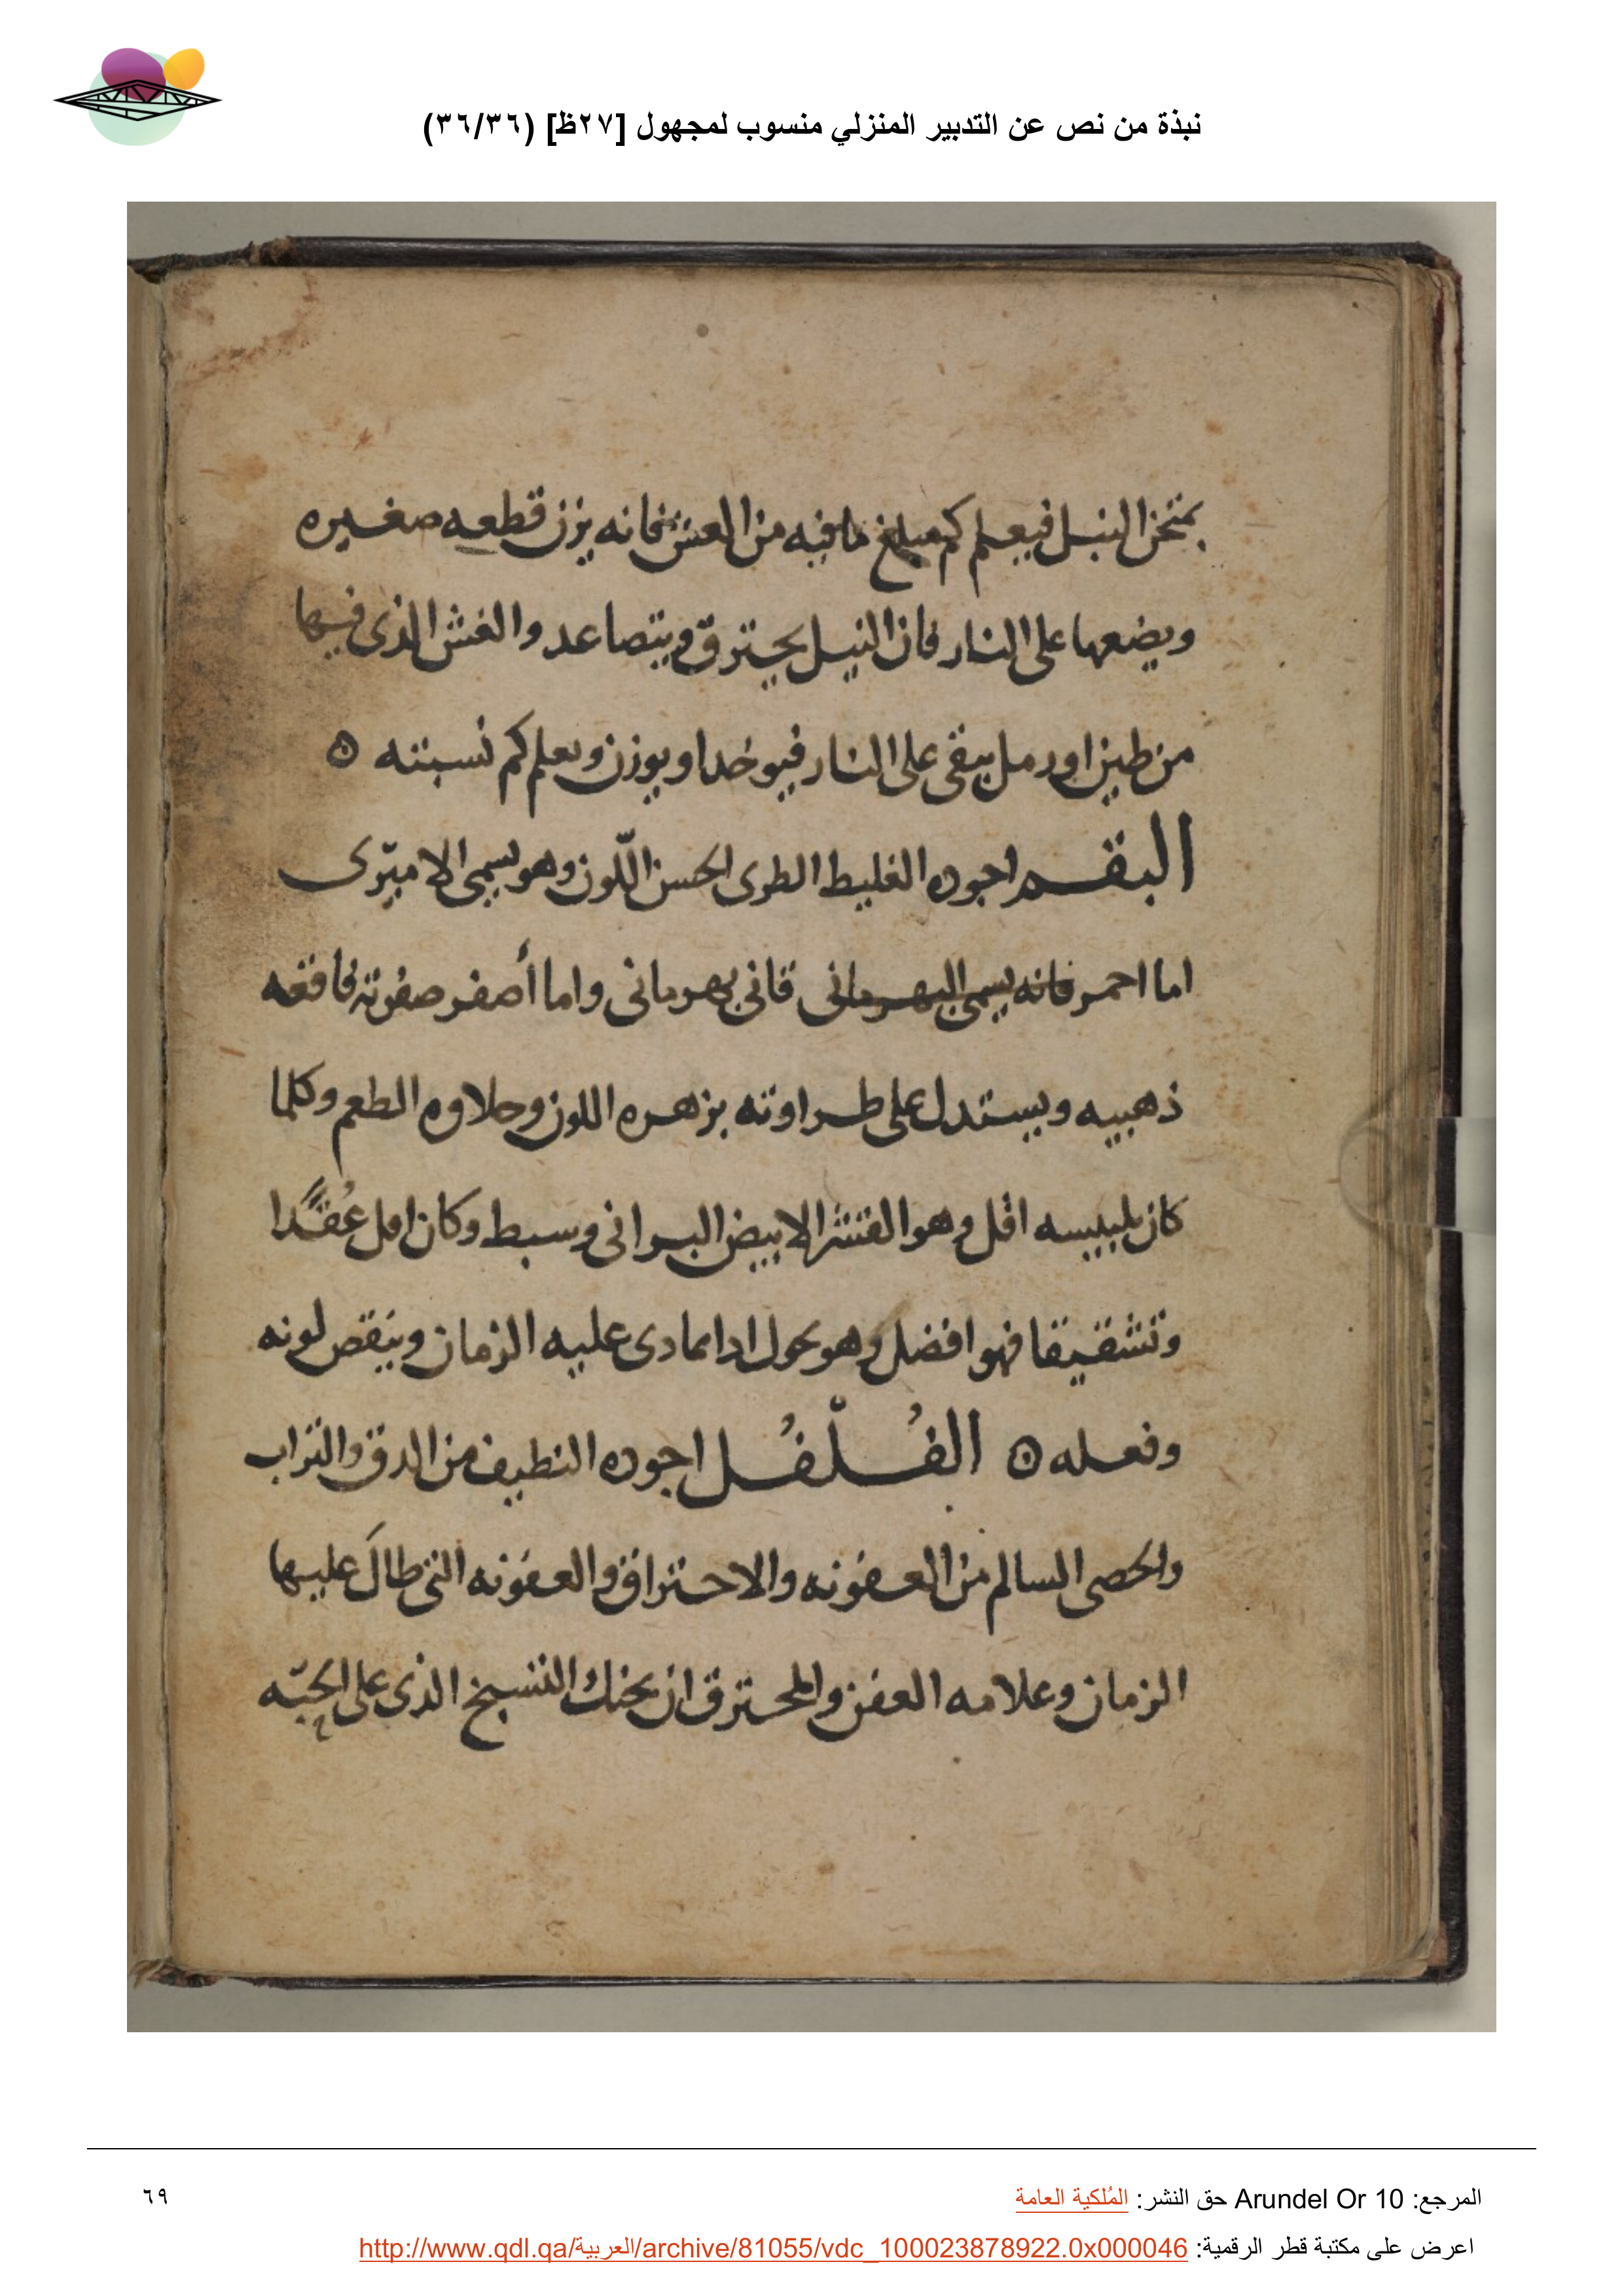 نبذة من نص عن التدبير المنزلي منسوب لمجهول [٢٧ظ] (٣٦/٣٦)
يمتحن النيل فيعلم كم مبلغ ما فيه من الغش فانه يزن قطعه صغيره
ويضعها على النار فان النيل يحترق ويتصاعد والغش الذى فيها
من طين او رمل يبقى على النار فيوخد او يوزن ويعلم كم نسبته ٥
البقم اجوده الغليط الطرى الحسن اللّون وهو يسمى الاميّرى
اما احمر فانه يسمى البهرمانى قانى بهرمانى واما أصفر صفرته فاقعه
ذهبيه ويستدل على طراوته بزهره اللون وحلاوه الطعم وكلما
كان اقل وهو القشر الابيض البرانى وسبط وكان اقل عُقَدًا
وتشقيقا فهو افضل وهو يحول ادا تمادى عليه الزمان وينقص لونه
وفعله ٥ الفُلّفُل اجوده النظيف من الدق والتراب
والحصى السالم من العفونه والاحتراق والعفونه التى طالَ عليها
الزمان وعلامه العفن والمحترق ان الذى على الحبّه
المرجع: Arundel Or 10 حق النشر: المُلكية العامة
٦٩
اعرض على مكتبة قطر الرقمية: http://www.qdl.qa/العربية/archive/81055/vdc_100023878922.0x000046